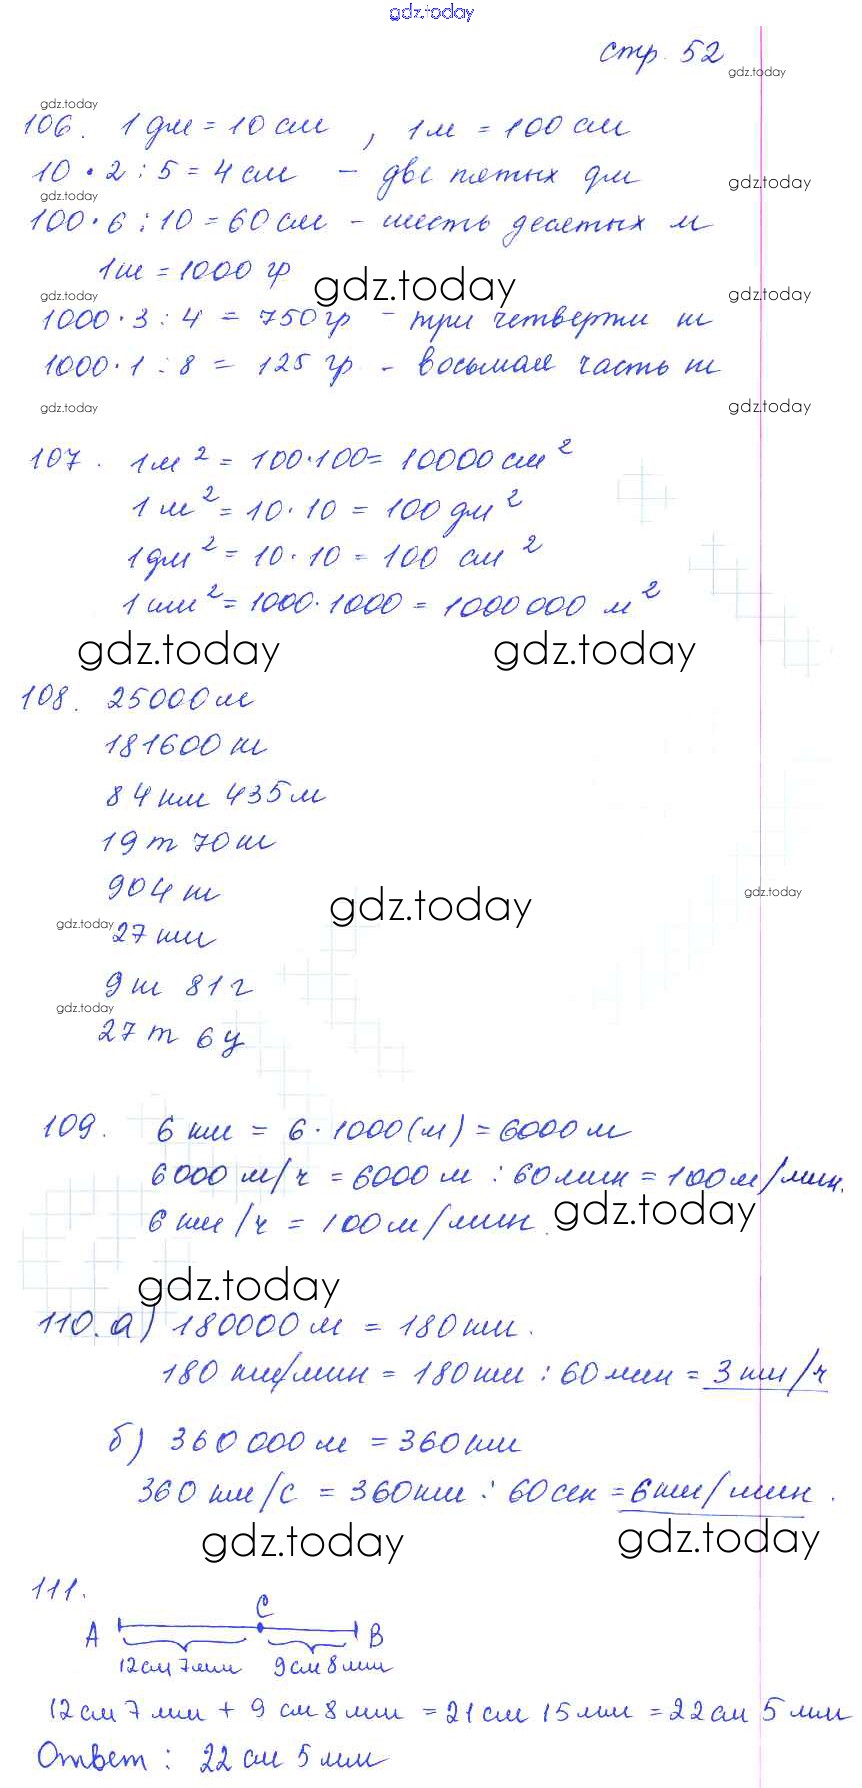 gdz.today
стр. 52
gdz.today
gdz.today
106. 1 дм = 10 см , 1 м = 100 см
10 · 2 : 5 = 4 см – две пятых дм
gdz.today
gdz.today
100 · 6 : 10 = 60 см – шесть десятых м
1 кг = 1000 гр
gdz.today
gdz.today
gdz.today
1000 · 3 : 4 = 750 гр – три четверти кг
1000 · 1 : 8 = 125 гр – восьмая часть кг
gdz.today
gdz.today
107. 1 м² = 100·100 = 10000 см²
1 м² = 10 · 10 = 100 дм²
1 дм² = 10 · 10 = 100 см²
1 км² = 1000·1000 = 1000000 м²
gdz.today
gdz.today
108. 25000 м
181600 кг
84 км 435 м
19 т 70 кг
904 кг
gdz.today
gdz.today
gdz.today
27 км
9 кг 81 г
gdz.today
27 т 6 ц
109. 6 км = 6 · 1000 (м) = 6000 м
6000 м/ч = 6000 м : 60 мин = 100 м/мин.
6 км/ч = 100 м/мин.
gdz.today
gdz.today
110. а) 180000 м = 180 км.
180 км/мин = 180 км : 60 мин = 3 км/ч
б) 360 000 м = 360 км
360 км/с = 360 км : 60 сек = 6 км/мин.
gdz.today
gdz.today
111.
C
A B
12 см 7 мм 9 см 8 мм
12 см 7 мм + 9 см 8 мм = 21 см 15 мм = 22 см 5 мм
Ответ : 22 см 5 мм